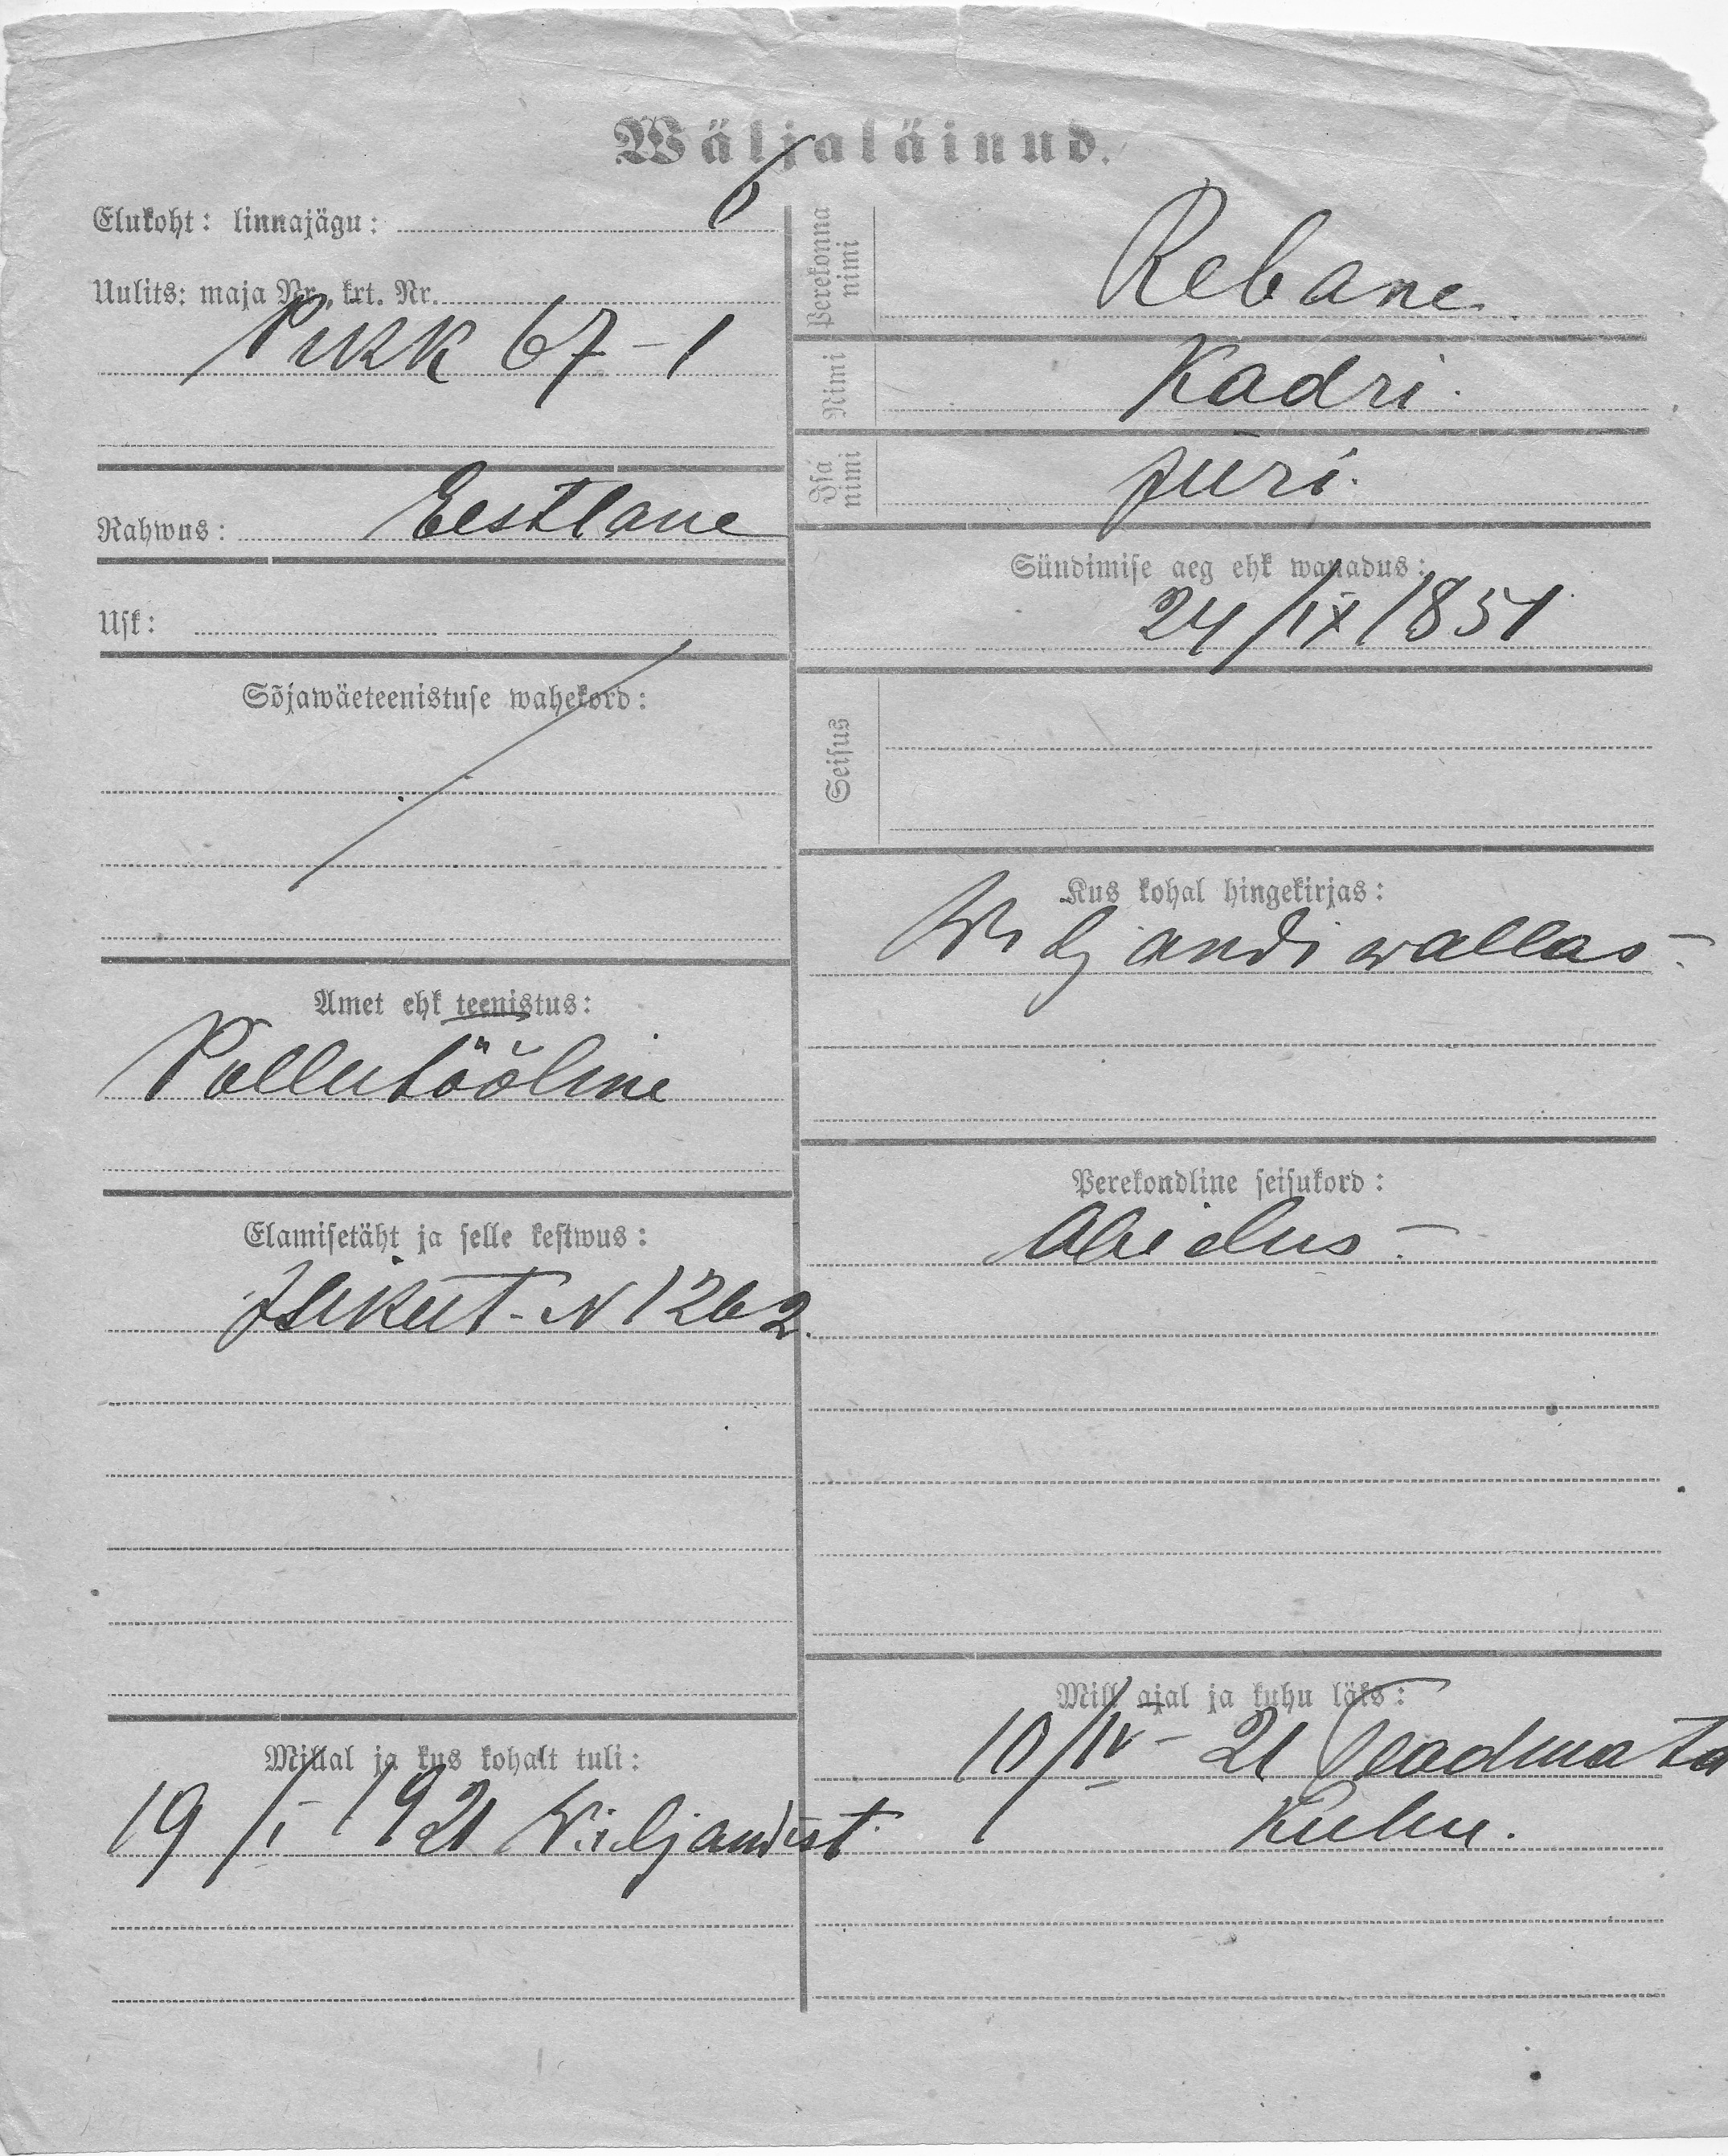 Wäljaläinud.
Elukoht: linnajägu: 6
Uulits: maja Nr., krt. Nr.
Pikk 67-1
Rahwus: Eestlane
Usk:
Sõjawäeteenistuse wahekord:
Amet ehk teenistus:
Põllutööline
Elamisetäht ja selle kestwus:
Isikut. N 1262.
Millal ja kus kohalt tuli:
19/I 1921 Wiljandist.
Perekonna nimi
Rebane
Nimi
Kadri.
Isa nimi
Jüri.
Sündimise aeg ehk wanadus:
24/IX 1851.
Seisus
Kus kohal hingekirjas:
Wiljandi wallas
Perekondline seisukord:
Abielus
Mill ajal ja kuhu läks:
10/IV - 21 Teadmata
Kuhu.